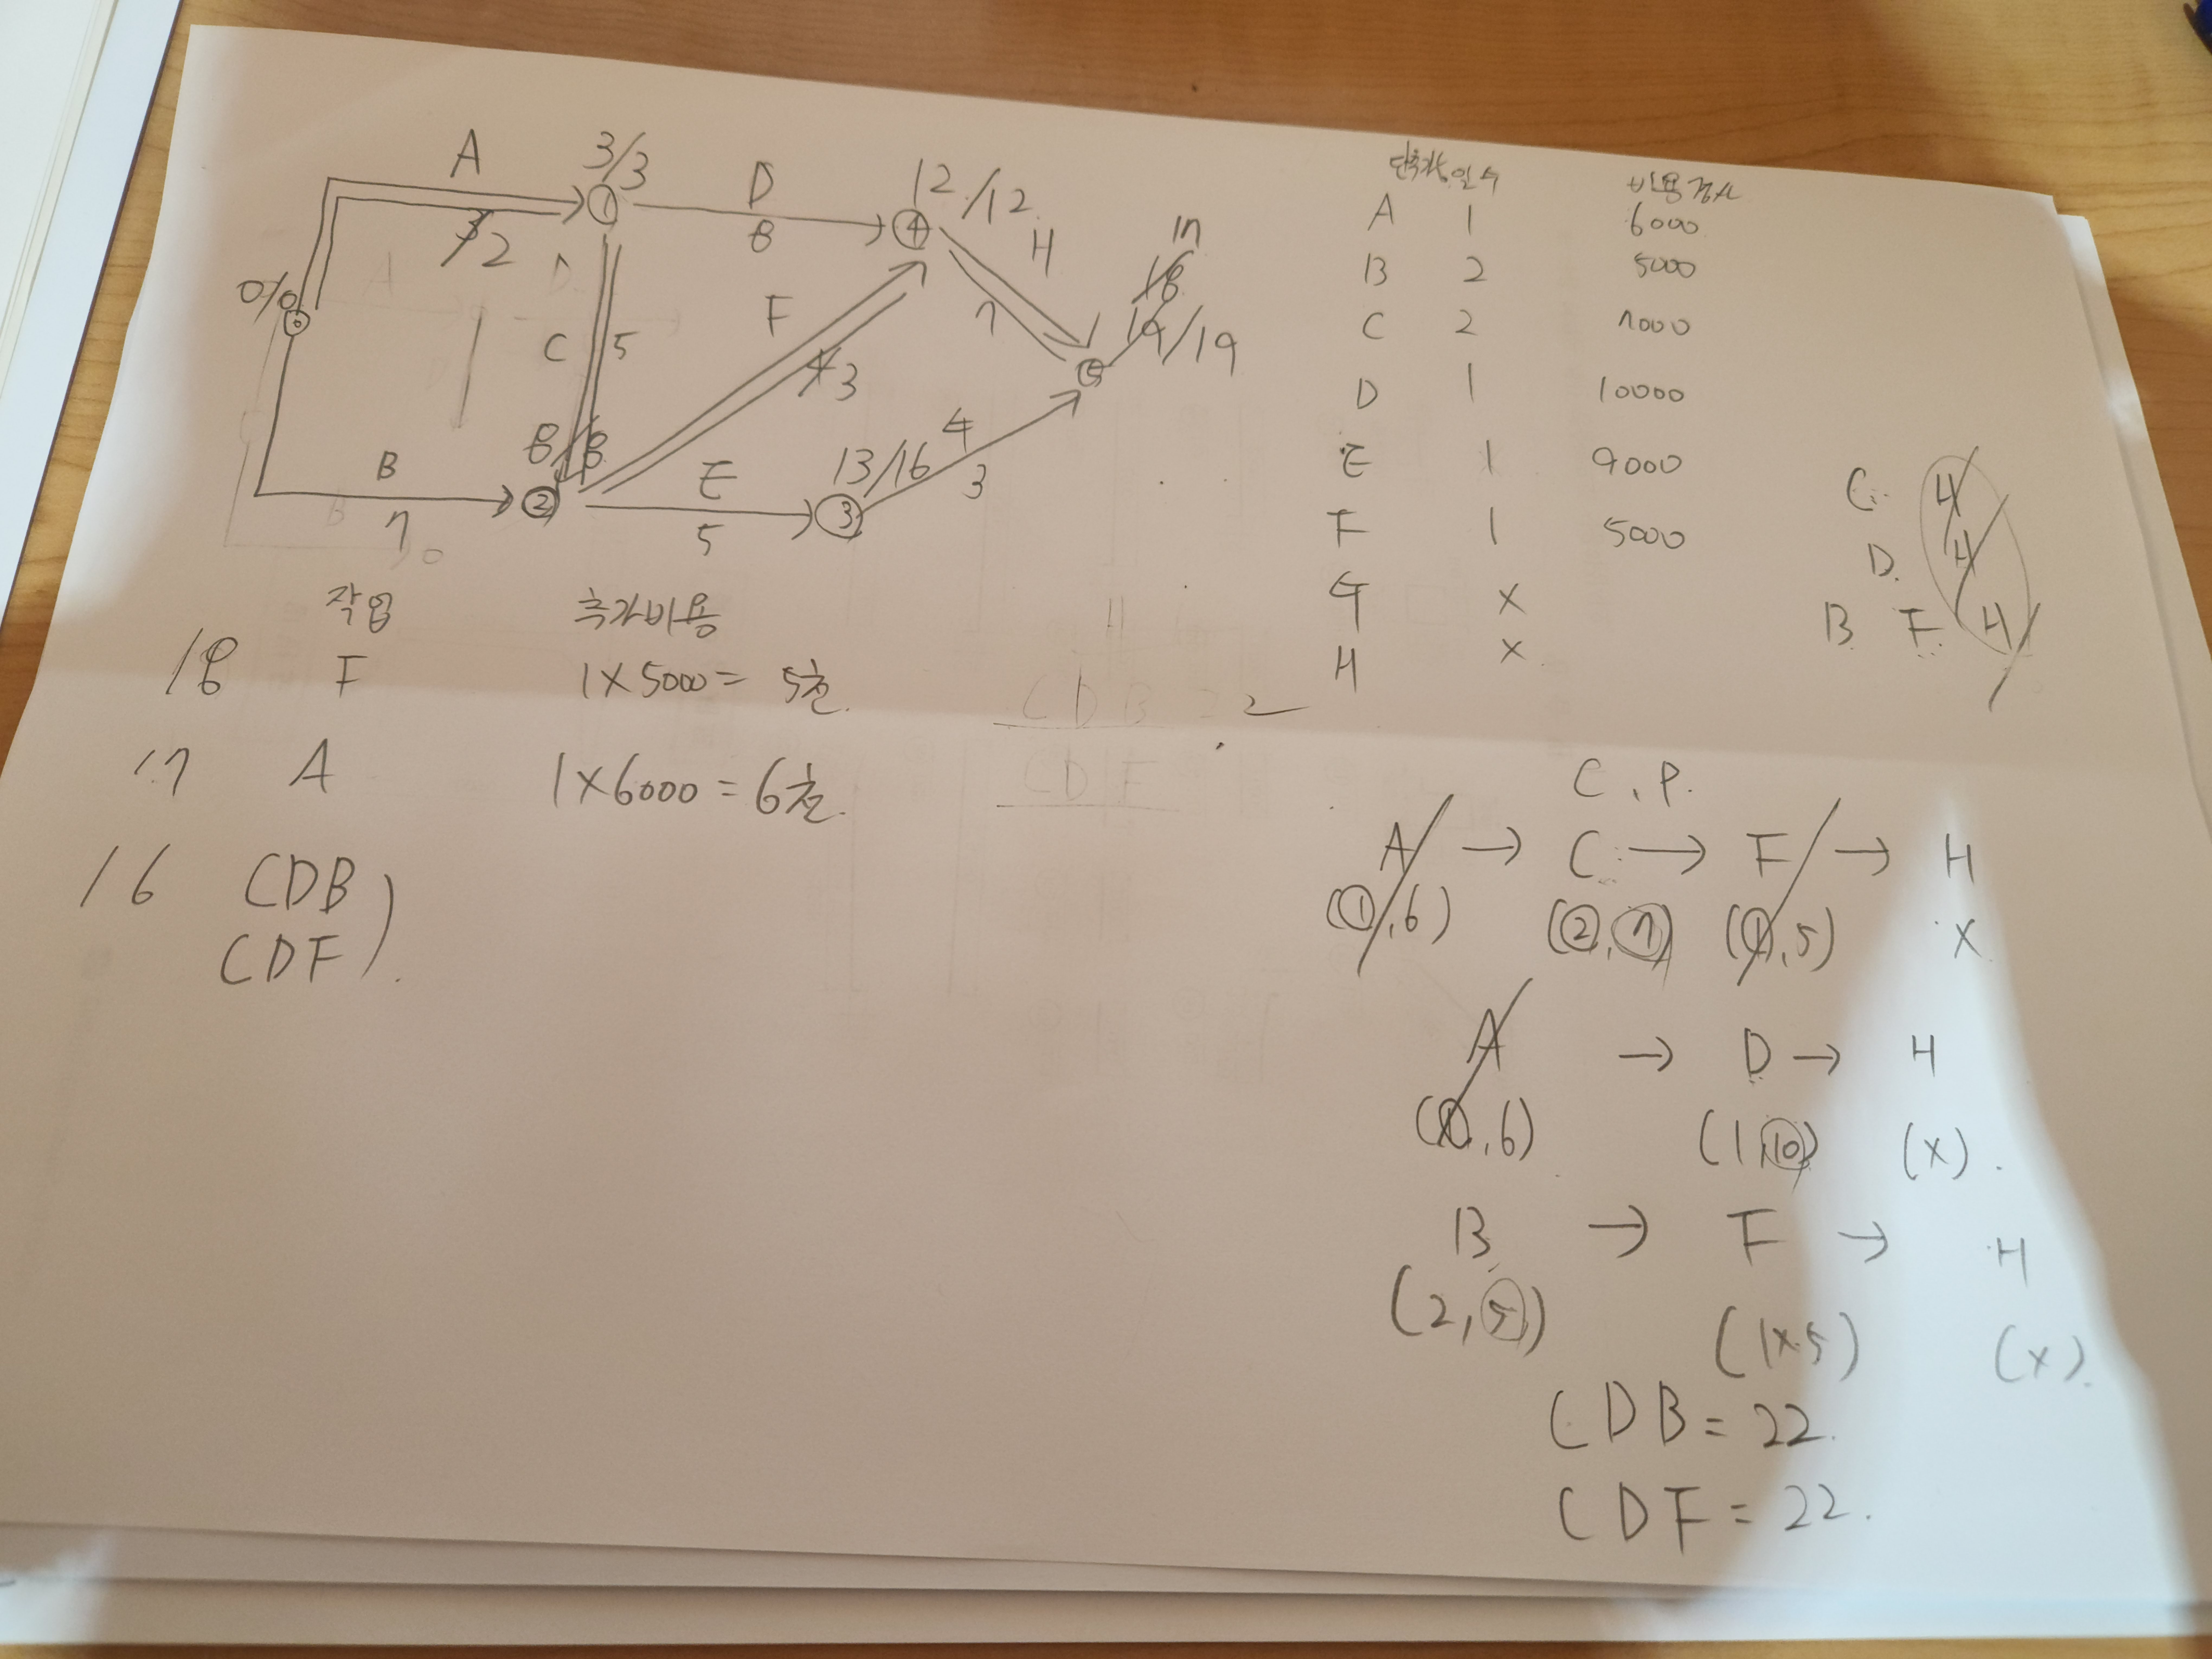 A
3/3
D
12/12
3 2
①
8
④
H
17
18
19/19
0/0
⓪
C
5
F
7
⑤
4 3
8/8
B
7
②
E
5
13/16
③
4
3
작업
추가비용
18 F 1×5000= 5천.
17 A 1×6000=6천.
16 CDB
CDF ).
단축가능일수 비용경사
A 1 6000
B 2 5000
C 2 7000
D 1 10000
E 1 9000
F 1 5000
G ×
H ×
C H
D. H
B F. H
C.P.
A → C → F → H
(①,6) (②,⑦) (①,5) ×
A → D → H
(1,6) (1,⑩) (×).
B → F → H
(2,⑤) (1×5) (×).
CDB=22.
CDF=22.